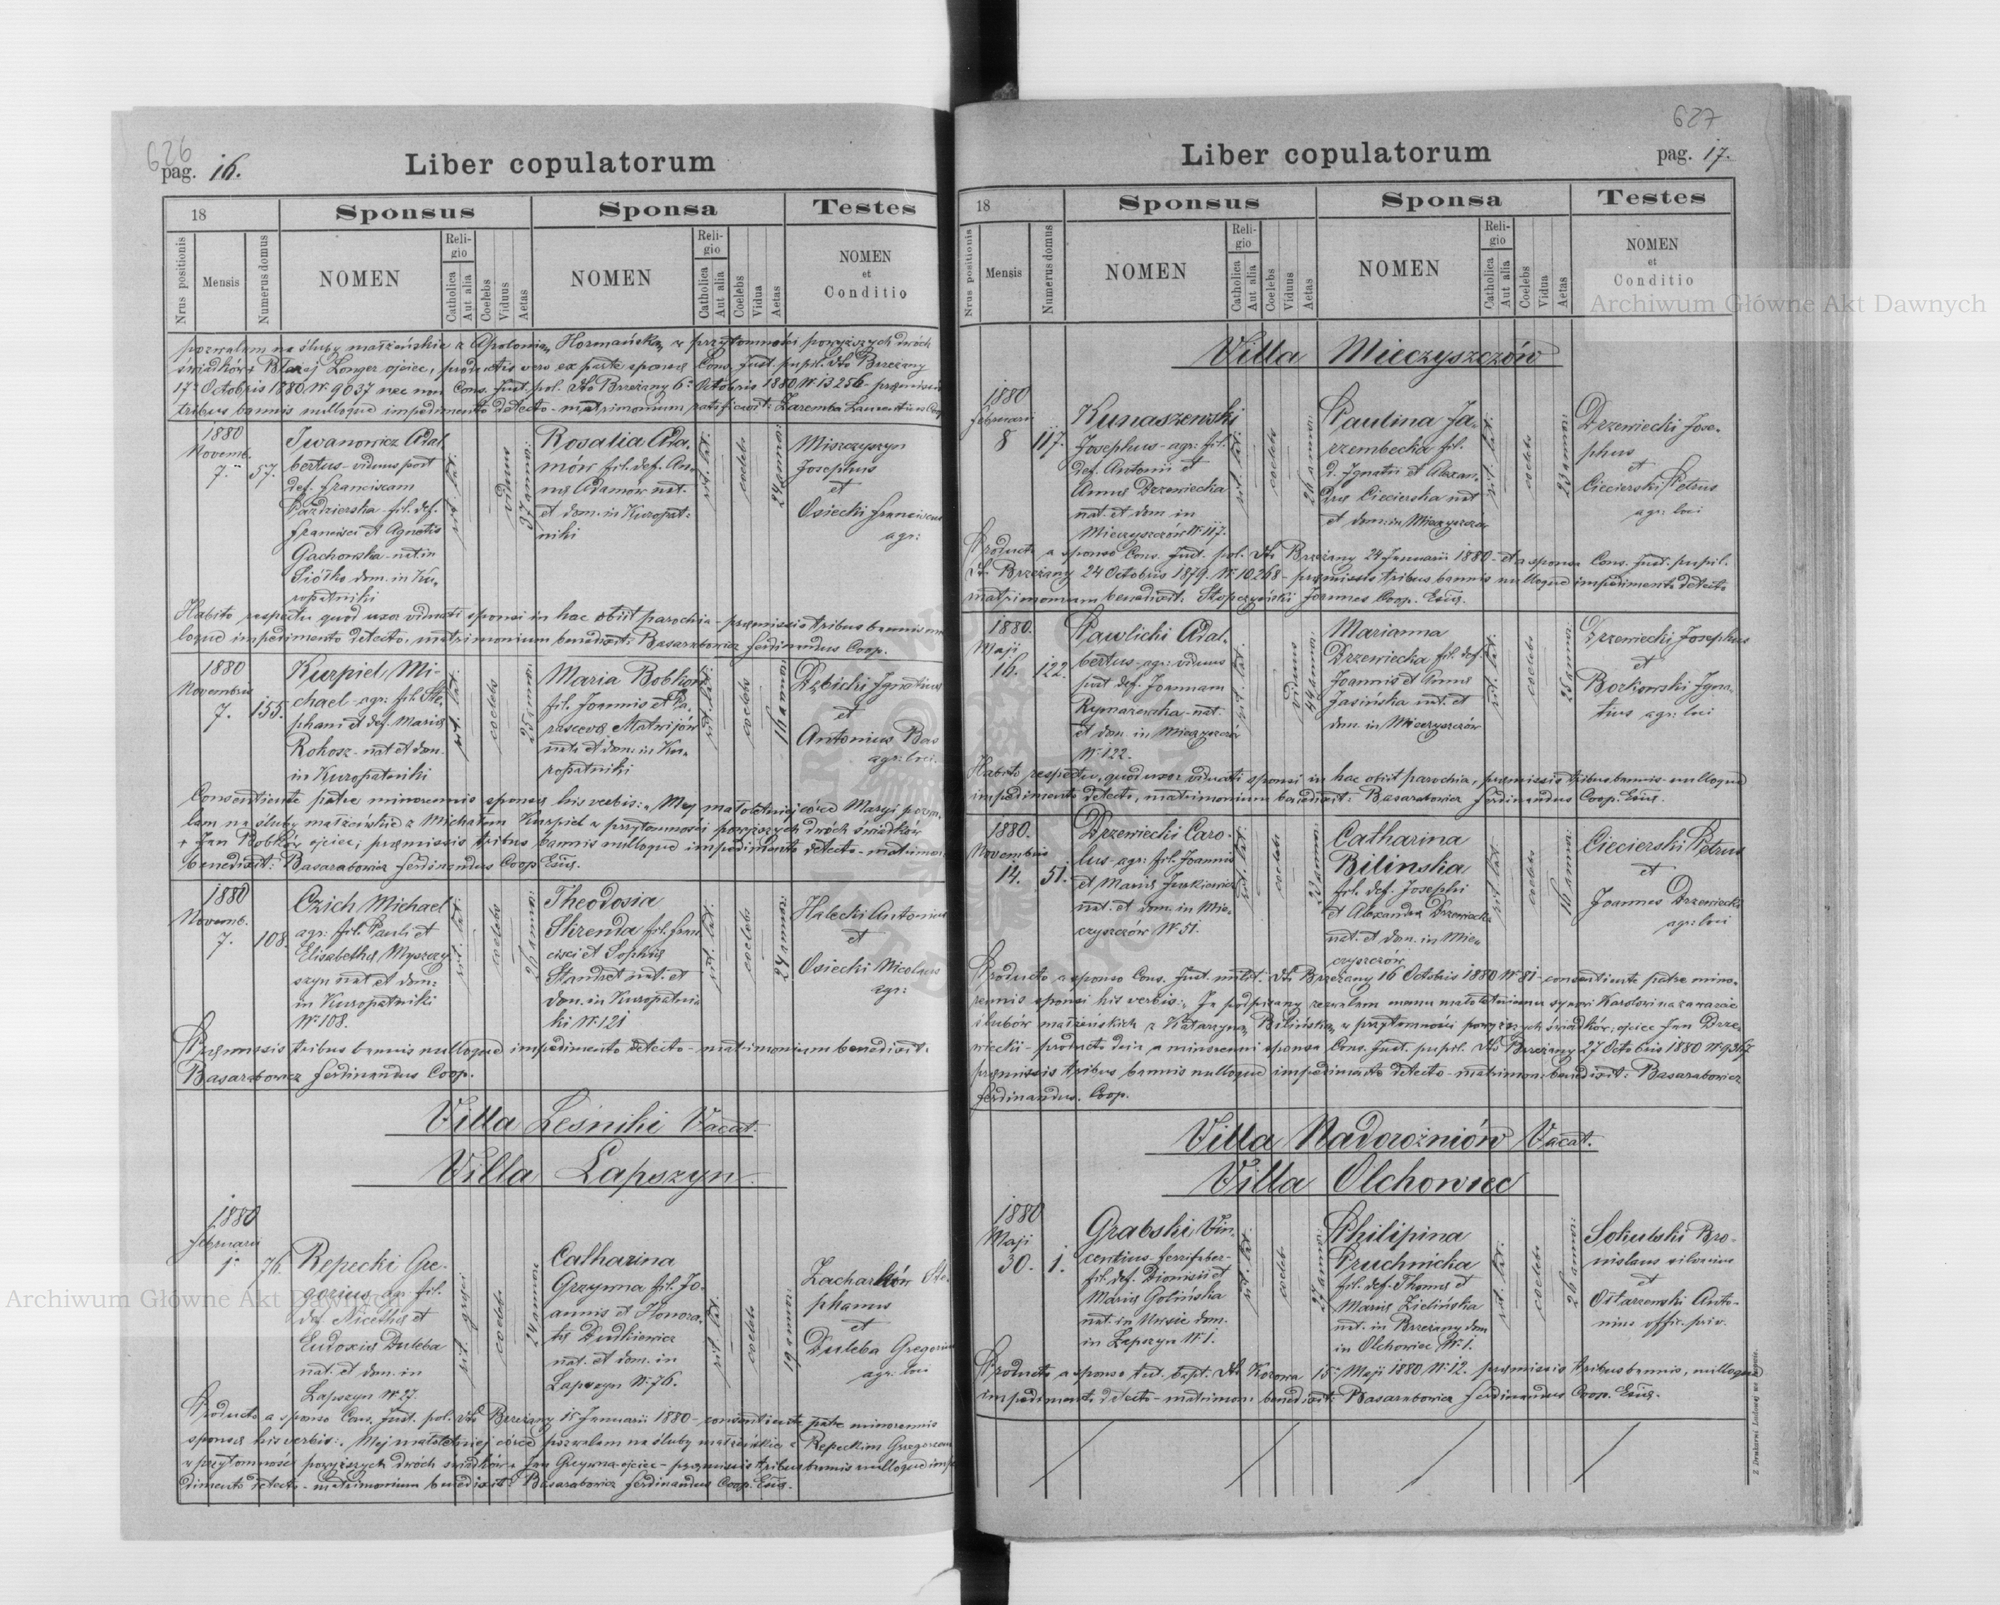 626
pag. 16.
Liber copulatorum
18
Sponsus
Sponsa
Testes
Nrus positionis
Mensis
Numerus domus
NOMEN
Religio
Catholica
Aut alia
Coelebs
Viduus
Aetas
NOMEN
Religio
Catholica
Aut alia
Coelebs
Vidua
Aetas
NOMEN
et
Conditio
pozwalam na śluby małżeńskie z Apolonią Hormańską w przytomności powyższych dwóch
świadków + Błażej Longer ojciec, productis vero ex parte sponsi Cons. Just. pupil. dto Brzeżany
17 Octobris 1880 Nr 9037 nec non Cons. Just. pol. dto Brzeżany 6 Octobris 1880 Nr 13256 - præmissis
tribus bannis nulloque impedimento detecto - matrimonium ratificavit: Zaremba Laurentius
1880
Novemb.
7.
57.
Iwanowicz Adal
bertus - viduus post
def. Franciscam
Październska - fil. def.
Francisci et Agnetis
Gachowska - nat. in
Siółko dom. in Ku-
ropatniki
rit. lat.
viduus
37 annor:
Rosalia Ada-
mów fil. def. An-
næ Adamów nat.
et dom. in Kuropat-
niki
rit. lat.
coelebs
24 annor:
Miszczyszyn
Josephus
et
Osiecki Franciscus
agr:
Habito respectu quod uxor viduati sponsi in hac obiit parochia - præmissis tribus bannis nul
loque impedimento detecto, matrimonium benedixit: Basarabowicz Ferdinandus Coop.
1880
Novembris
7.
155.
Kurpiel Mi-
chael - agr: fil. Ste-
phani et def. Mariæ
Rokosz - nat et dom.
in Kuropatniki
rit. lat.
coelebs
25 annor:
Maria Bobków
fil. Joannis et Pa-
rascevæ Matwijów
nata et dom. in Ku-
ropatniki
rit. lat.
coelebs
Dębicki Ignatius
et
Antonius Bas
agr: loci
Consentiente patre minorennis sponsæ his verbis: „Mej małoletniej córce Maryi pozwa-
lam na śluby małżeńskie z Michałem Kurpiel w przytomności powyższych dwóch świadków
+ Jan Bobków ojciec; præmissis tribus bannis nulloque impedimento detecto - matrimon:
benedixit: Basarabowicz Ferdinandus Coop. Exiis.
1880
Novemb.
7.
108.
Czich Michael
agr: fil. Pauli et
Elisabethæ Myszczy
szyn nat et dom:
in Kuropatniki
Nr. 108.
rit. lat.
coelebs
26 annor:
Theodosia
Skrenda fil. Fran
cisci et Sophiæ
Standret nat. et
dom. in Kuropatni-
ki Nr. 121
rit. lat.
coelebs
24 annor:
Halecki Antonius
et
Osiecki Nicolaus
agr:
Præmissis tribus bannis nulloque impedimento detecto - matrimonium benedixit:
Basarabowicz Ferdinandus Coop.
Villa Leśniki Vacat.
Villa Łapszyn
1880
Februarii
1.
76.
Repecki Gre-
gorius agr. fil.
def. Nicethæ et
Eudoxiæ Duleba
nat. et dom. in
Łapszyn Nr. 27.
rit. græci
coelebs
24 annor:
Catharina
Grzywna fil. Jo-
annis et Honora-
tæ Dudkiewicz
nat. et dom. in
Łapszyn Nr. 76.
rit. lat.
coelebs
19 annor:
Zacharków Ste-
phanus
et
Duleba Gregorius
agr: loci
Producto a sponso Cons. Just. pol. dto Brzeżany 15 Januarii 1880 - consentiente patre minorennis
sponsæ his verbis: Mej małoletniej córce pozwalam na śluby małżeńskie z Repeckim Grzegorzem
w przytomności powyższych dwóch świadków + Jan Grzywna ojciec - præmissis tribus bannis nulloque impe-
dimento detecto - matrimonium benedixit: Basarabowicz Ferdinandus Coop. Exiis.
627
pag. 17.
Liber copulatorum
18
Sponsus
Sponsa
Testes
Nrus positionis
Mensis
Numerus domus
NOMEN
Religio
Catholica
Aut alia
Coelebs
Viduus
Aetas
NOMEN
Religio
Catholica
Aut alia
Coelebs
Vidua
Aetas
NOMEN
et
Conditio
Villa Mieczyszczów
1880
Februarii
8
117.
Kunaszewski
Josephus - agr: fil.
def. Antonii et
Annæ Drzewiecka
nat. et dom in
Mieczyszczów Nr. 117.
rit. lat.
coelebs
26 annor:
Paulina Ja-
rzembecka fil.
d. Ignatii et Alexan-
dræ Ciecierska nat
et dom: in Mieczyszczów
rit. lat.
coelebs
23 annor:
Drzewiecki Jose-
phus
et
Ciecierski Petrus
agr: loci
Producto a sponso Cons. Just. pol. dto Brzeżany 24 Januarii 1880 - et a sponsa Cons. Just. pupil.
dto Brzeżany 24 Octobris 1879. Nr. 10268 - præmissis tribus bannis nulloque impedimento detecto
matrimonium benedixit. Stopczyński Joannes Coop. Exiis.
1880.
Maji
16.
122.
Pawlicki Adal-
bertus - agr: viduus
post def. Joannam
Rymarewska - nat.
et dom. in Mieczyszczów
Nr. 122.
rit. lat.
viduus
44 annor:
Marianna
Drzewiecka fil. def.
Joannis et Annæ
Jasińska nat. et
dom. in Mieczyszczów
rit. lat.
coelebs
25 annor:
Drzewiecki Josephus
et
Borkowski Igna-
tius agr: loci
Habito respectu, quod uxor viduati sponsi in hac obiit parochia, præmissis tribus bannis nulloque
impedimento detecto, matrimonium benedixit: Basarabowicz Ferdinandus Coop. Exiis.
1880.
Novembris
14.
51.
Drzewiecki Caro-
lus - agr: fil. Joannis
et Mariæ Jurkiewicz
nat. et dom. in Mie-
czyszczów Nr. 51.
rit. lat.
coelebs
23 annor:
Catharina
Bilinska
fil. def. Josephi
et Alexandra Drzewiecka
nat. et dom. in Mie-
czyszczów
rit. lat.
coelebs
16 annor:
Ciecierski Petrus
et
Joannes Drzewiecki
agr: loci
Producto a sponso Cons. Just. milit. dto Brzeżany 16 Octobris 1880 Nr. 81 - consentiente patre mino-
rennis sponsi his verbis: Ja podpisany zezwalam memu małoletniemu synowi Karolowi na zawarcie
ślubów małżeńskich z Katarzyną Bilińską w przytomności powyższych świadków, ojciec Jan Drze-
wiecki - producto dein a minorenni sponsa Cons. Just. pupil. dto Brzeżany 27 Octobris 1880 Nr. 9367
præmissis tribus bannis nulloque impedimento detecto - matrimon: benedixit: Basarabowicz
Ferdinandus. Coop.
Villa Nadorożniów Vacat.
Villa Olchowiec
1880
Maji
30.
1.
Grabski Vin-
centius - ferrifaber -
fil. def. Dionisii et
Mariæ Golińska
nat. in Ursie dom.
in Łapszyn Nr. 1.
rit. lat.
coelebs
27 annor:
Philipina
Pruchnicka
fil. def. Thomæ et
Mariæ Zielińska
nat. in Brzeżany dom
in Olchowiec Nr. 1.
rit. lat.
coelebs
26 annor:
Sokulski Bro-
nislaus silvanus
et
Ostarzewski Anto-
nius offic. priv.
Producto a sponso test. bapt. dto Kozowa 15 Maji 1880 Nr. 12. præmissis tribus bannis, nulloque
impedimento detecto - matrimon: benedixit: Basarabowicz Ferdinandus Coop. Exiis.
Archiwum Główne Akt Dawnych
Archiwum Główne Akt Dawnych